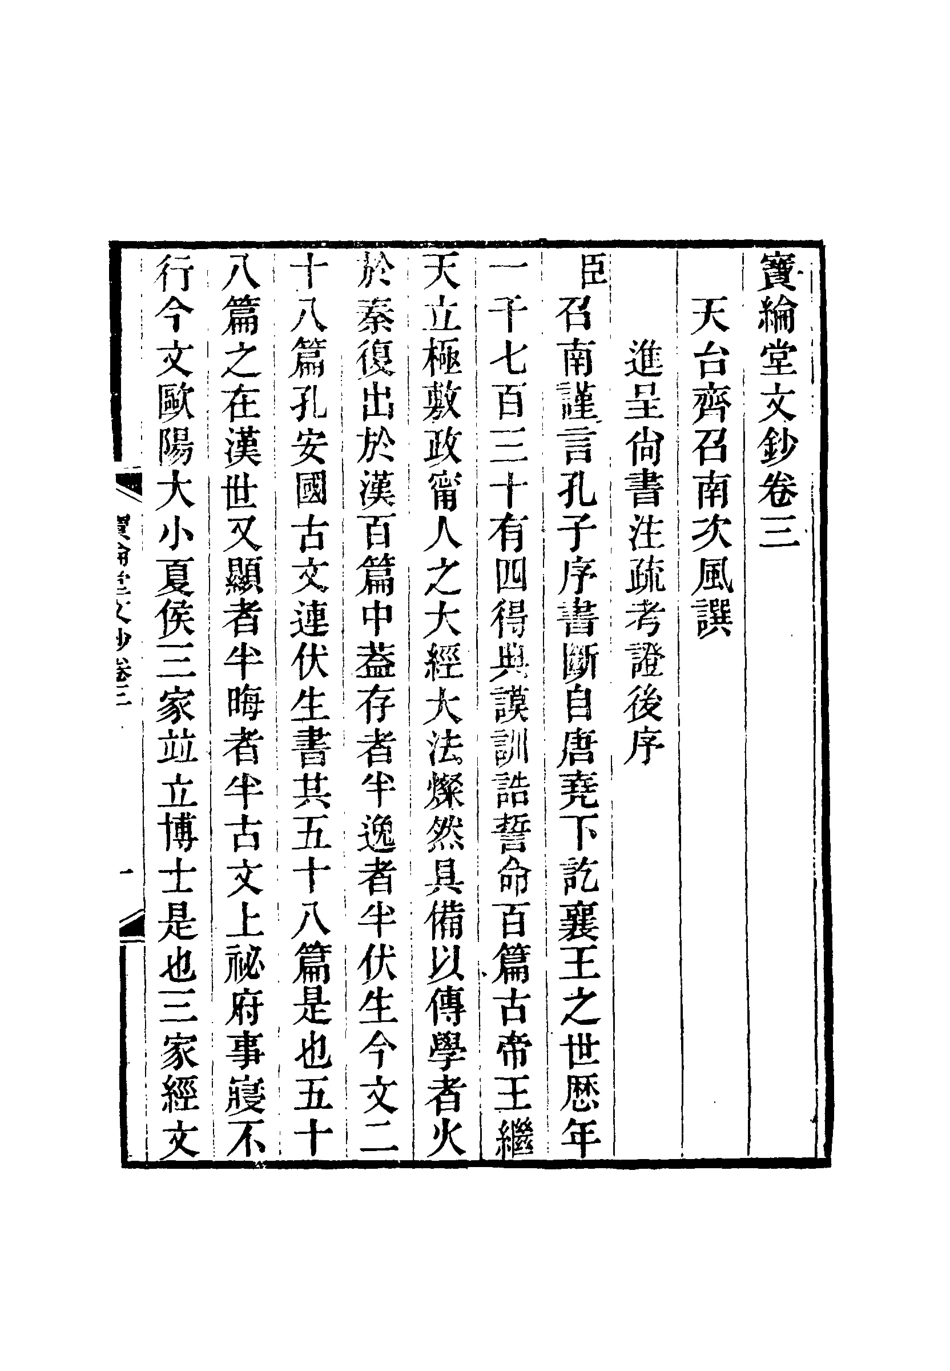 寶綸堂文鈔卷三
天台齊召南次風譔
進呈尙書注疏考證後序
臣召南謹言孔子序書斷自唐堯下訖襄王之世歴年
一千七百三十有四得典謨訓誥誓命百篇古帝王繼
天立極敷政甯人之大經大法燦然具備以傳學者火
於秦復出於漢百篇中葢存者半逸者半伏生今文二
十八篇孔安國古文連伏生書共五十八篇是也五十
八篇之在漢世又顯者半晦者半古文上祕府事寢不
行今文歐陽大小夏侯三家竝立博士是也三家經文
寶綸堂文鈔卷三 一